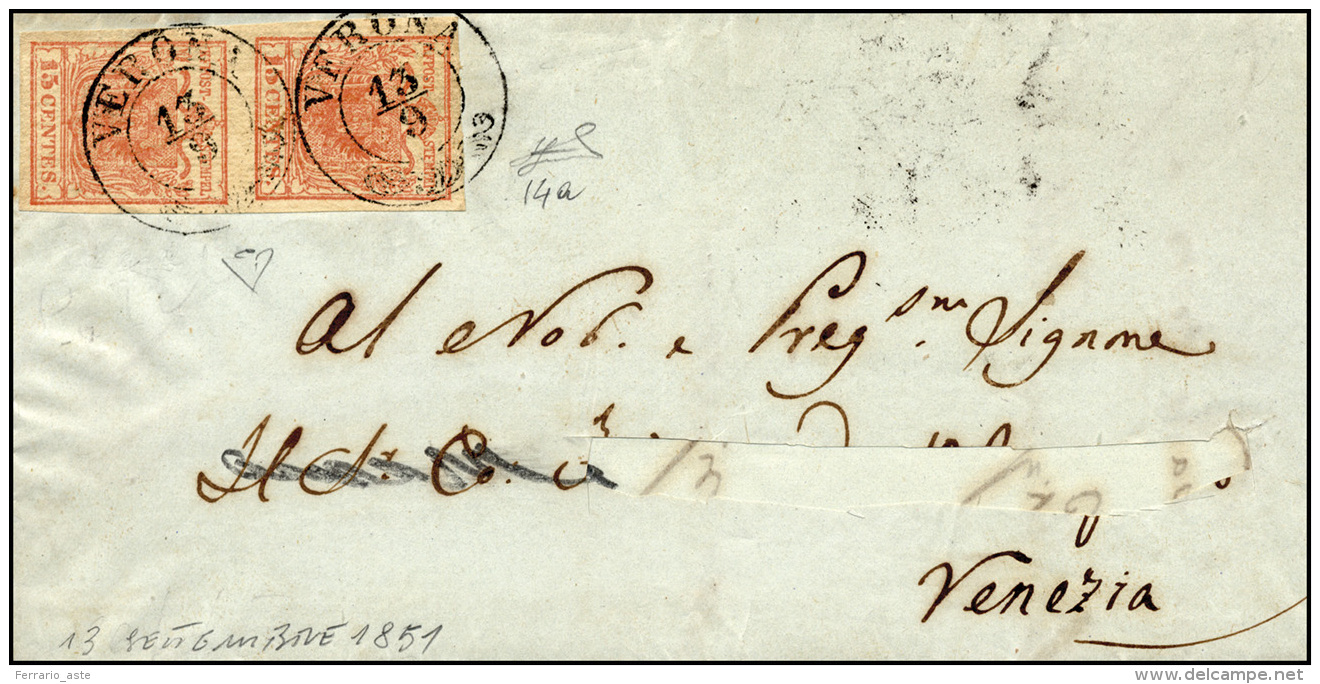 15 CENTES.
15 CENTES.
VERONA
13/9
VERONA
13/9
14a
Al Nob. e Preg.smo Signore
Il Sr. Co.
Venezia
13 SETTEMBRE 1851
Ferrario_aste
www.delcampe.net